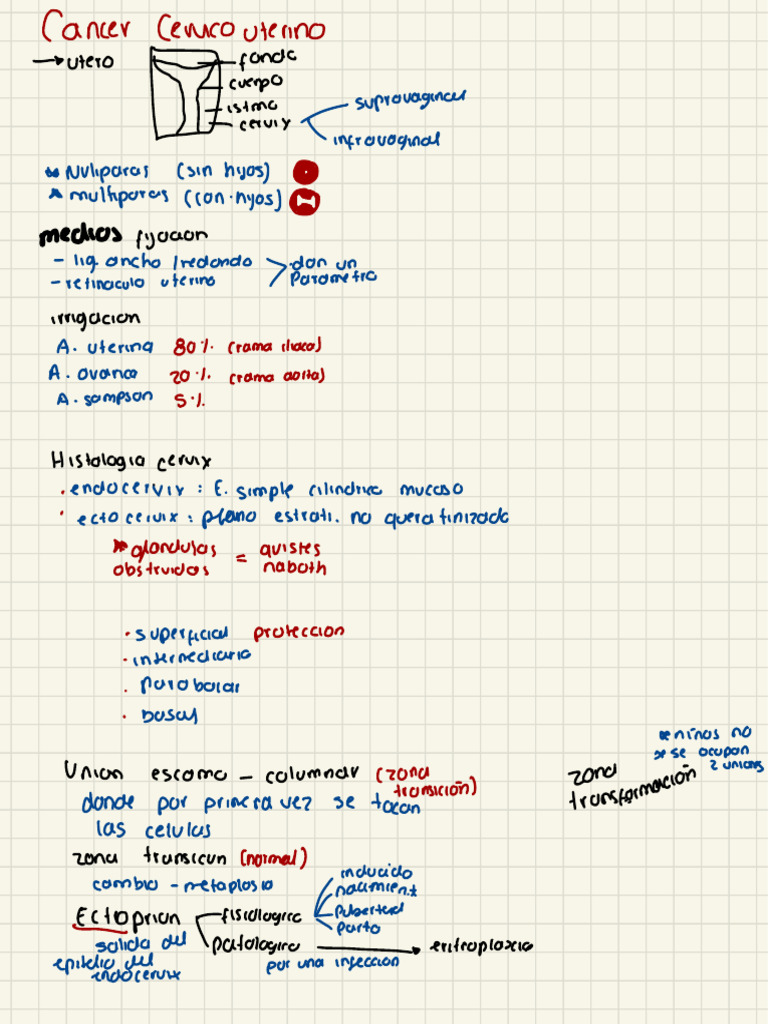 Cancer Cervico uterino
→ utero
fondo
cuerpo
istmo
cervix
supravaginal
infravaginal
* Nuliparas (sin hijos)
* multiparas (con hijos)
medios fijacion
- lig. ancho / redondo
- retinaculo uterino
dan un
parametrio
irrigacion
A. uterina 80% (rama iliaca)
A. ovarica 20% (rama aorta)
A. sampson 5%
Histologia cervix
• endocervix : E. simple cilindrico mucoso
• ectocervix : plano estrati. no queratinizado
* glandulas
obstruidas
=
quistes
naboth
• superficial proteccion
• intermediaria
• parabasal
• basal
Union escamo - columnar (zona
transición)
donde por primera vez se tocan
las celulas
zona
transformación
* niñas no
* se ocupan
2 unions
zona transicion (normal)
cambio - metaplasia
Ectoprion
salida del
epitelio del
endocervix
fisiologica
inducido
nacimient
pubertad
parto
patologica → eritroplaxia
por una infeccion